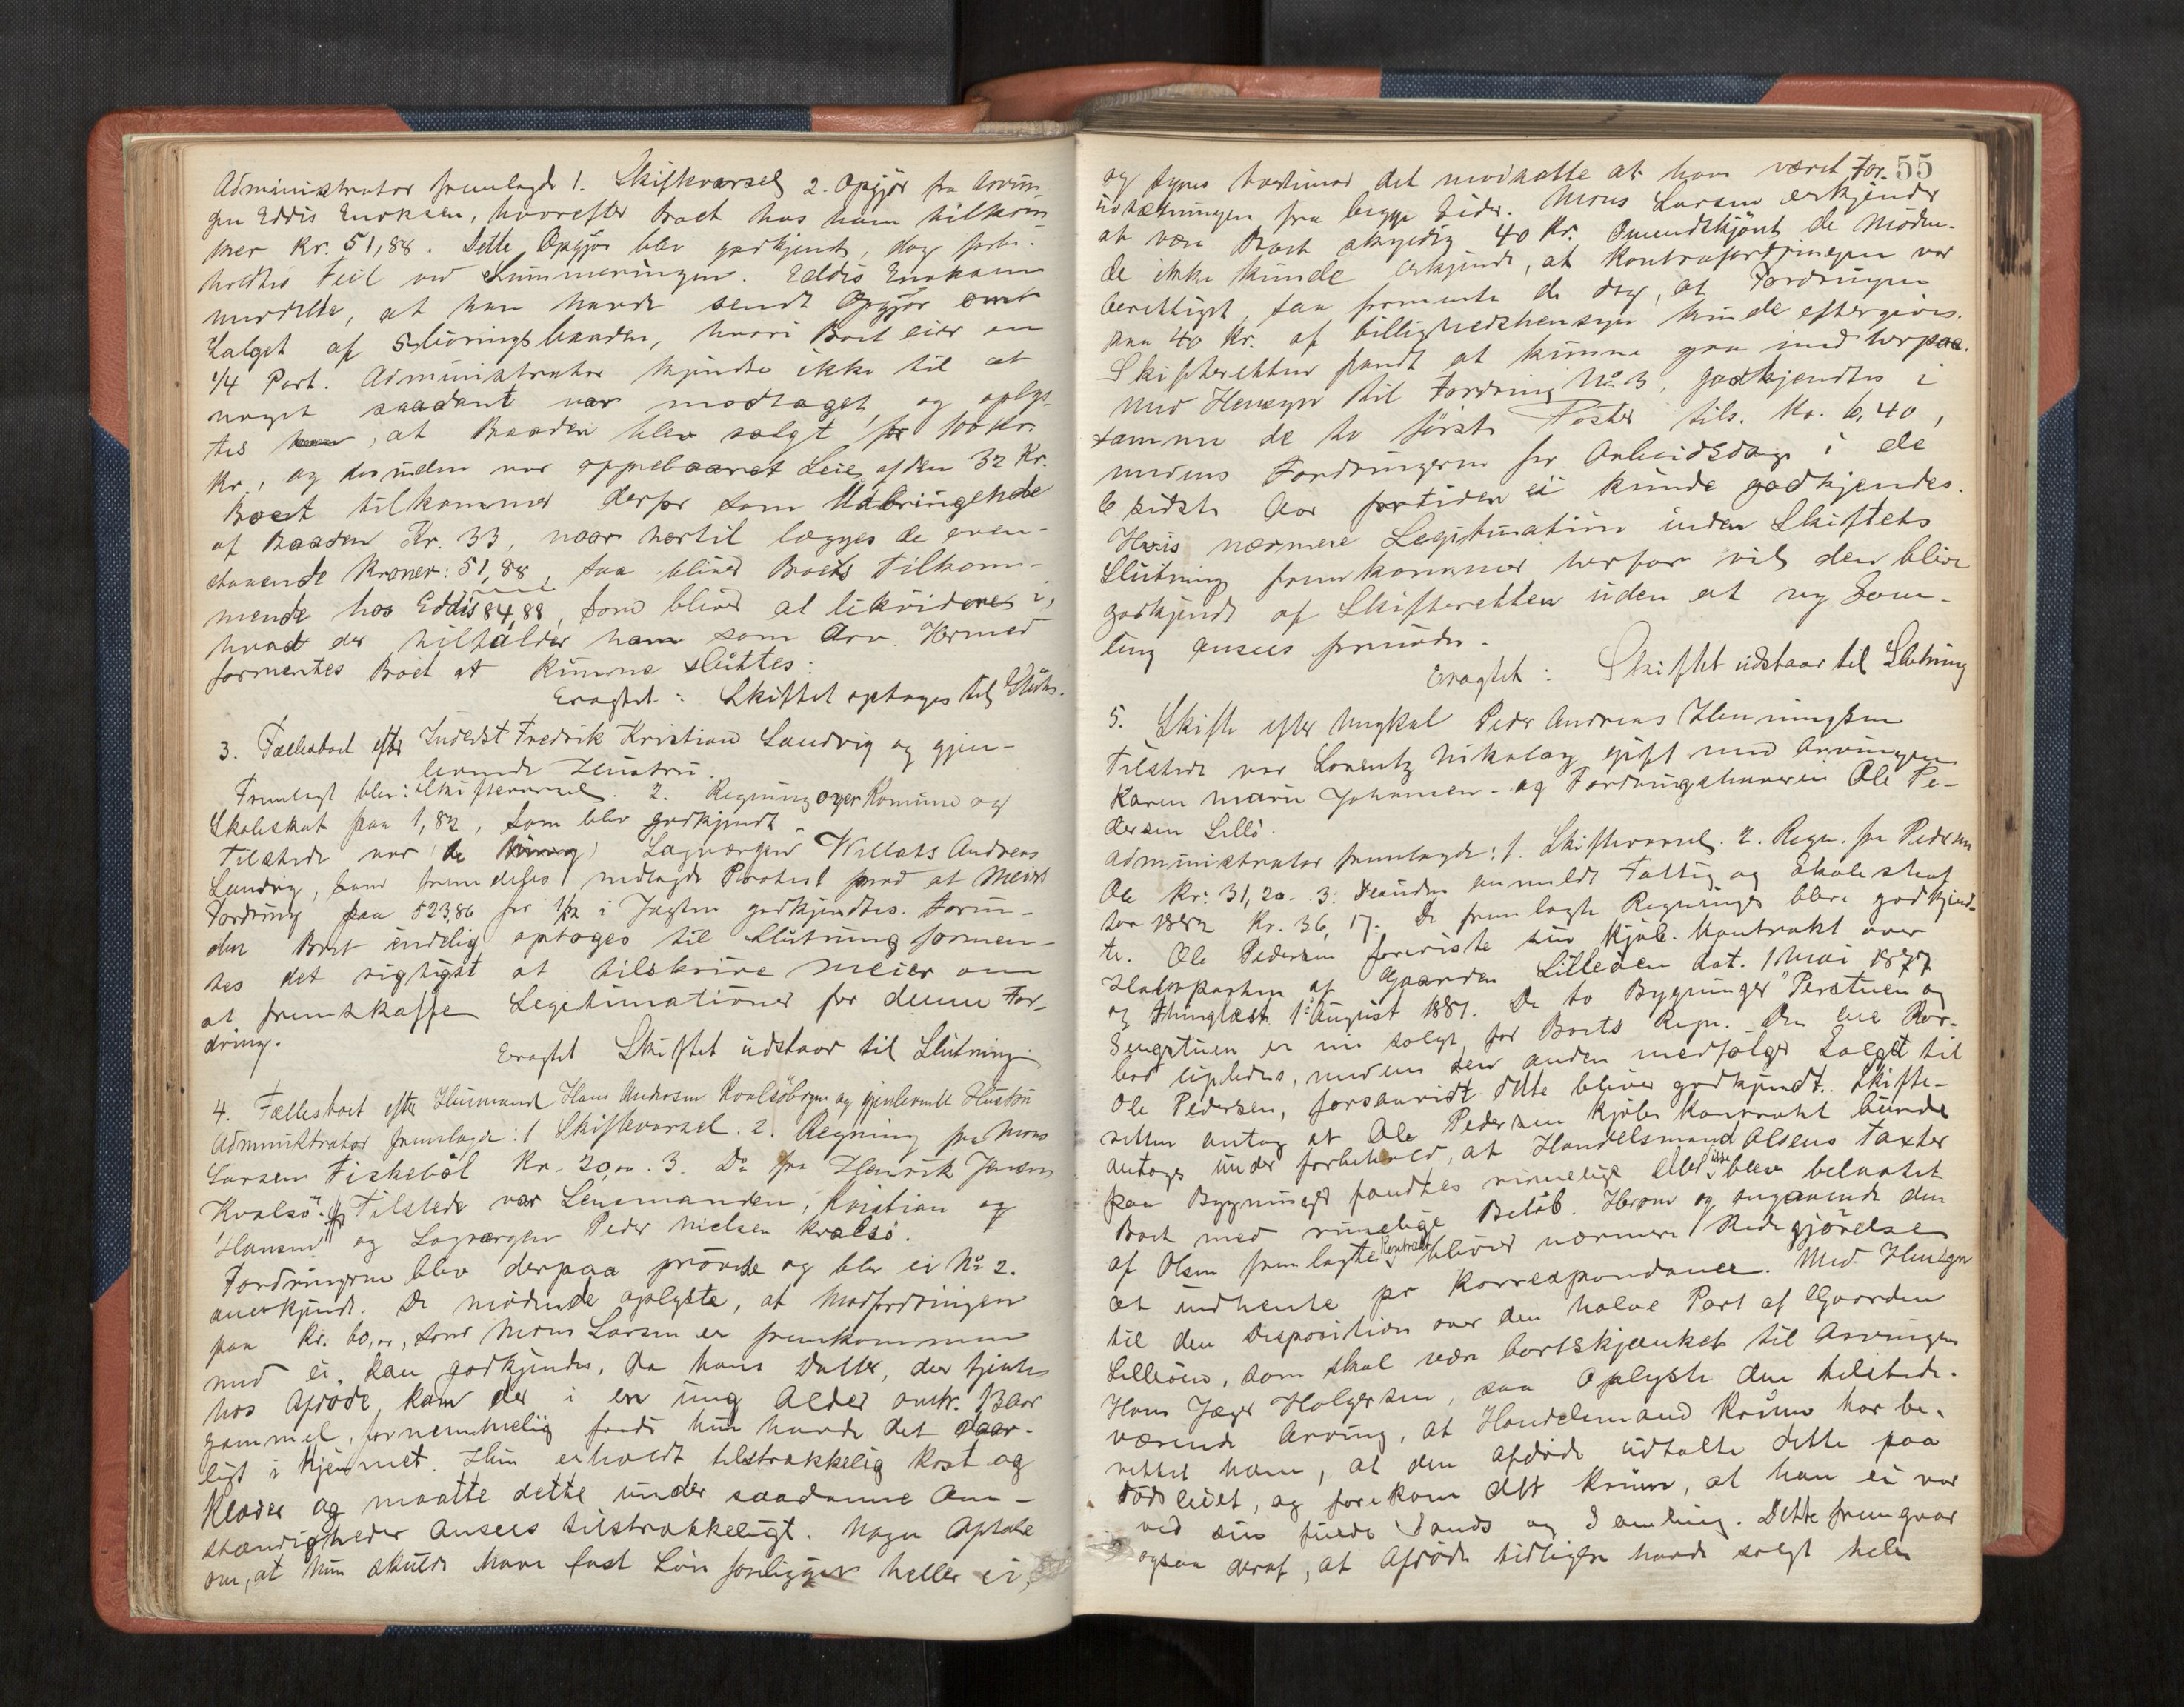 Administrator fremlagde 1. Skiftevarsel 2. Opgjør fra Arvin-
gen Eddis Enoksen, hvorefter Boet hos ham tilkom-
mer Kr. 51,88. Dette Opgjør blev godkjendt, dog forbe-
holdtes Feil ved Summeringen. Eddis Enoksen
meddelte, at han havde sendt Opgjør om
Salget af 5böringsbaaden, hvori Boet eier en
1/4 Part. Administrator kjendte ikke til at
noget saadant var modtaget, og oplys-
tes, at Baaden blev solgt for 100 Kr.
Kr., og desuden var oppebaaret Leie af den 32 Kr.
Boet tilkommer derfor som Udbringende
af Baaden Kr. 33, naar hertil lægges de oven-
staaende Kroner: 51,88, saa bliver Boets Tilkom-
mende hos Eddis 84,88, som bliver at likvidere i,
hvad der tilfalder ham som Arv. Hermed
formentes Boet at kunne sluttes.
Eragtet: Skiftet optages til Slutn.
3. Fællesboet efter Inderst Fredrik Kristian Sandvig og gjen-
levende Hustru.
Fremlagt blev: Skiftevarsel. 2. Regning over Komune og
Skoleskat paa 1,82, som blev godkjendt.
Tilstede var Lagværgen Willats Andreas
Sandvig, nedlagde Protest mod at Meiers
Fordring paa 523,86 for 1/2 i Jagten godkjendtes. Forin-
den Boet endelig optages til Slutning formen-
tes det rigtigst at tilskrive Meier om
at fremskaffe Legitimationer for denne For-
dring.
Eragtet Skiftet udstaar til Slutning.
4. Fællesboet efter Husmand Hans Andersen Kvalsöbogen og gjenlevende Hustru
Administrator fremlagde: 1 Skiftevarsel. 2. Regning fra Mons
Larsen Fiskeböl Kr. 20,00. 3. Do fra Henrik Jensen
Kvalsö. Tilstede var Lensmanden, Kristian
Hansen og Lagværgen Peder Nielsen Kvalsö.
Fordringerne blev derpaa prövede og blev ei No 2.
anerkjendt. De mödende oplyste, at Modfordringen
paa Kr. 60,00, som Mons Larsen er fremkommen
med ei kan godkjendes, da hans Datter, der tjente
hos Afdöde, kom der i en ung Alder omtr. 13 Aar
gammel, fornemmelig fordi hun havde det daar-
ligt i Hjemmet. Hun erholdt tilstrækkelig Kost og
Klæder og maatte dette under saadanne Om-
stændigheder ansees tilstrækkeligt. Nogen Aftale
om, at hun skulde have fast Lön foreligger heller ei,
55
og synes tvertimod det modsatte at have været For-
udsætningen fra begge Sider. Mons Larsen erkjender
at være Boet skyldig 40 Kr. Omendskjönt de möden-
de ikke kunde erkjende, at Kontrafordringen var
berettiget, saa formente de dog, at Fordringen
paa 40 Kr. af Billighedshensyn kunde eftergives.
Skifteretten fandt at kunne gaa ind herpaa.
Med Hensyn til Fordring No 3, godkjendtes i
samme de to förste Poster tils. Kr. 6,40,
medens Fordringerne for Arbeidsdage i de
6 sidste Aar fortiden ei kunde godkjendes.
Hvis nærmere Legitimation inden Skiftets
Slutning fremkommer herfor vil den blive
godkjendt af Skifteretten uden at ny Sam-
ling ansees fornöden.
Eragtet: Skiftet udstaar til Slutning
5. Skifte efter Ungkal Peder Andreas Henningsen
Tilstede var Lorentz Nikolay gift med Arvingen
Karen Marie Johannesen og Fordringshaveren Ole Pe-
dersen Lillö.
Administrator fremlagde: 1. Skiftevarsel. 2. Regn. fra Pedersen
Ole Kr: 31,20. 3: anmeldt Fattig og Skoleskat
for 1882 Kr. 36,17. De fremlagte Regninger blev godkjend-
te. Ole Pedersen foreviste sin Kjöbe-Kontrakt over
Halvparten af Gaarden Lilleöen dat. 1 Mai 1877
og thinglæst 1 August 1881. De to Bygninger "Perstuen og
Sengstuen er nu solgt for Boets Regn. Den ene
medens den anden medfölger Salget til
Ole Pedersen, forsaavidt dette bliver godkjendt. Skifte-
retten antog at Ole Pedersen Kjöbekontrakt burde
antages under Forbehold, at Handelsmand Olsens Taxter
paa Bygninger fandtes rimelige eller disse blev belastet
Boet med rimelige Belöb. Herom og angaaende den
af Olsen fremlagte Kontrakt bliver nærmere Redegjörelse
at indhente pr Korrespondance. Med Hensyn
til den Disposition over den halve Part af Gaarden
Lilleöen, som skal være bortskjænket til Arvingen
Hans Jæger Holgersen, saa oplyste den tilstede-
værende Arving, at Handelsmand Kruse har be-
rettet ham, at den afdöde udtalte dette paa
Dödsleiet, og forekom det Kruse, at han ei var
ved sin fulde Sands og Samling. Dette fremgaar
ogsaa deraf, at Afdöde tidligere havde solgt hele